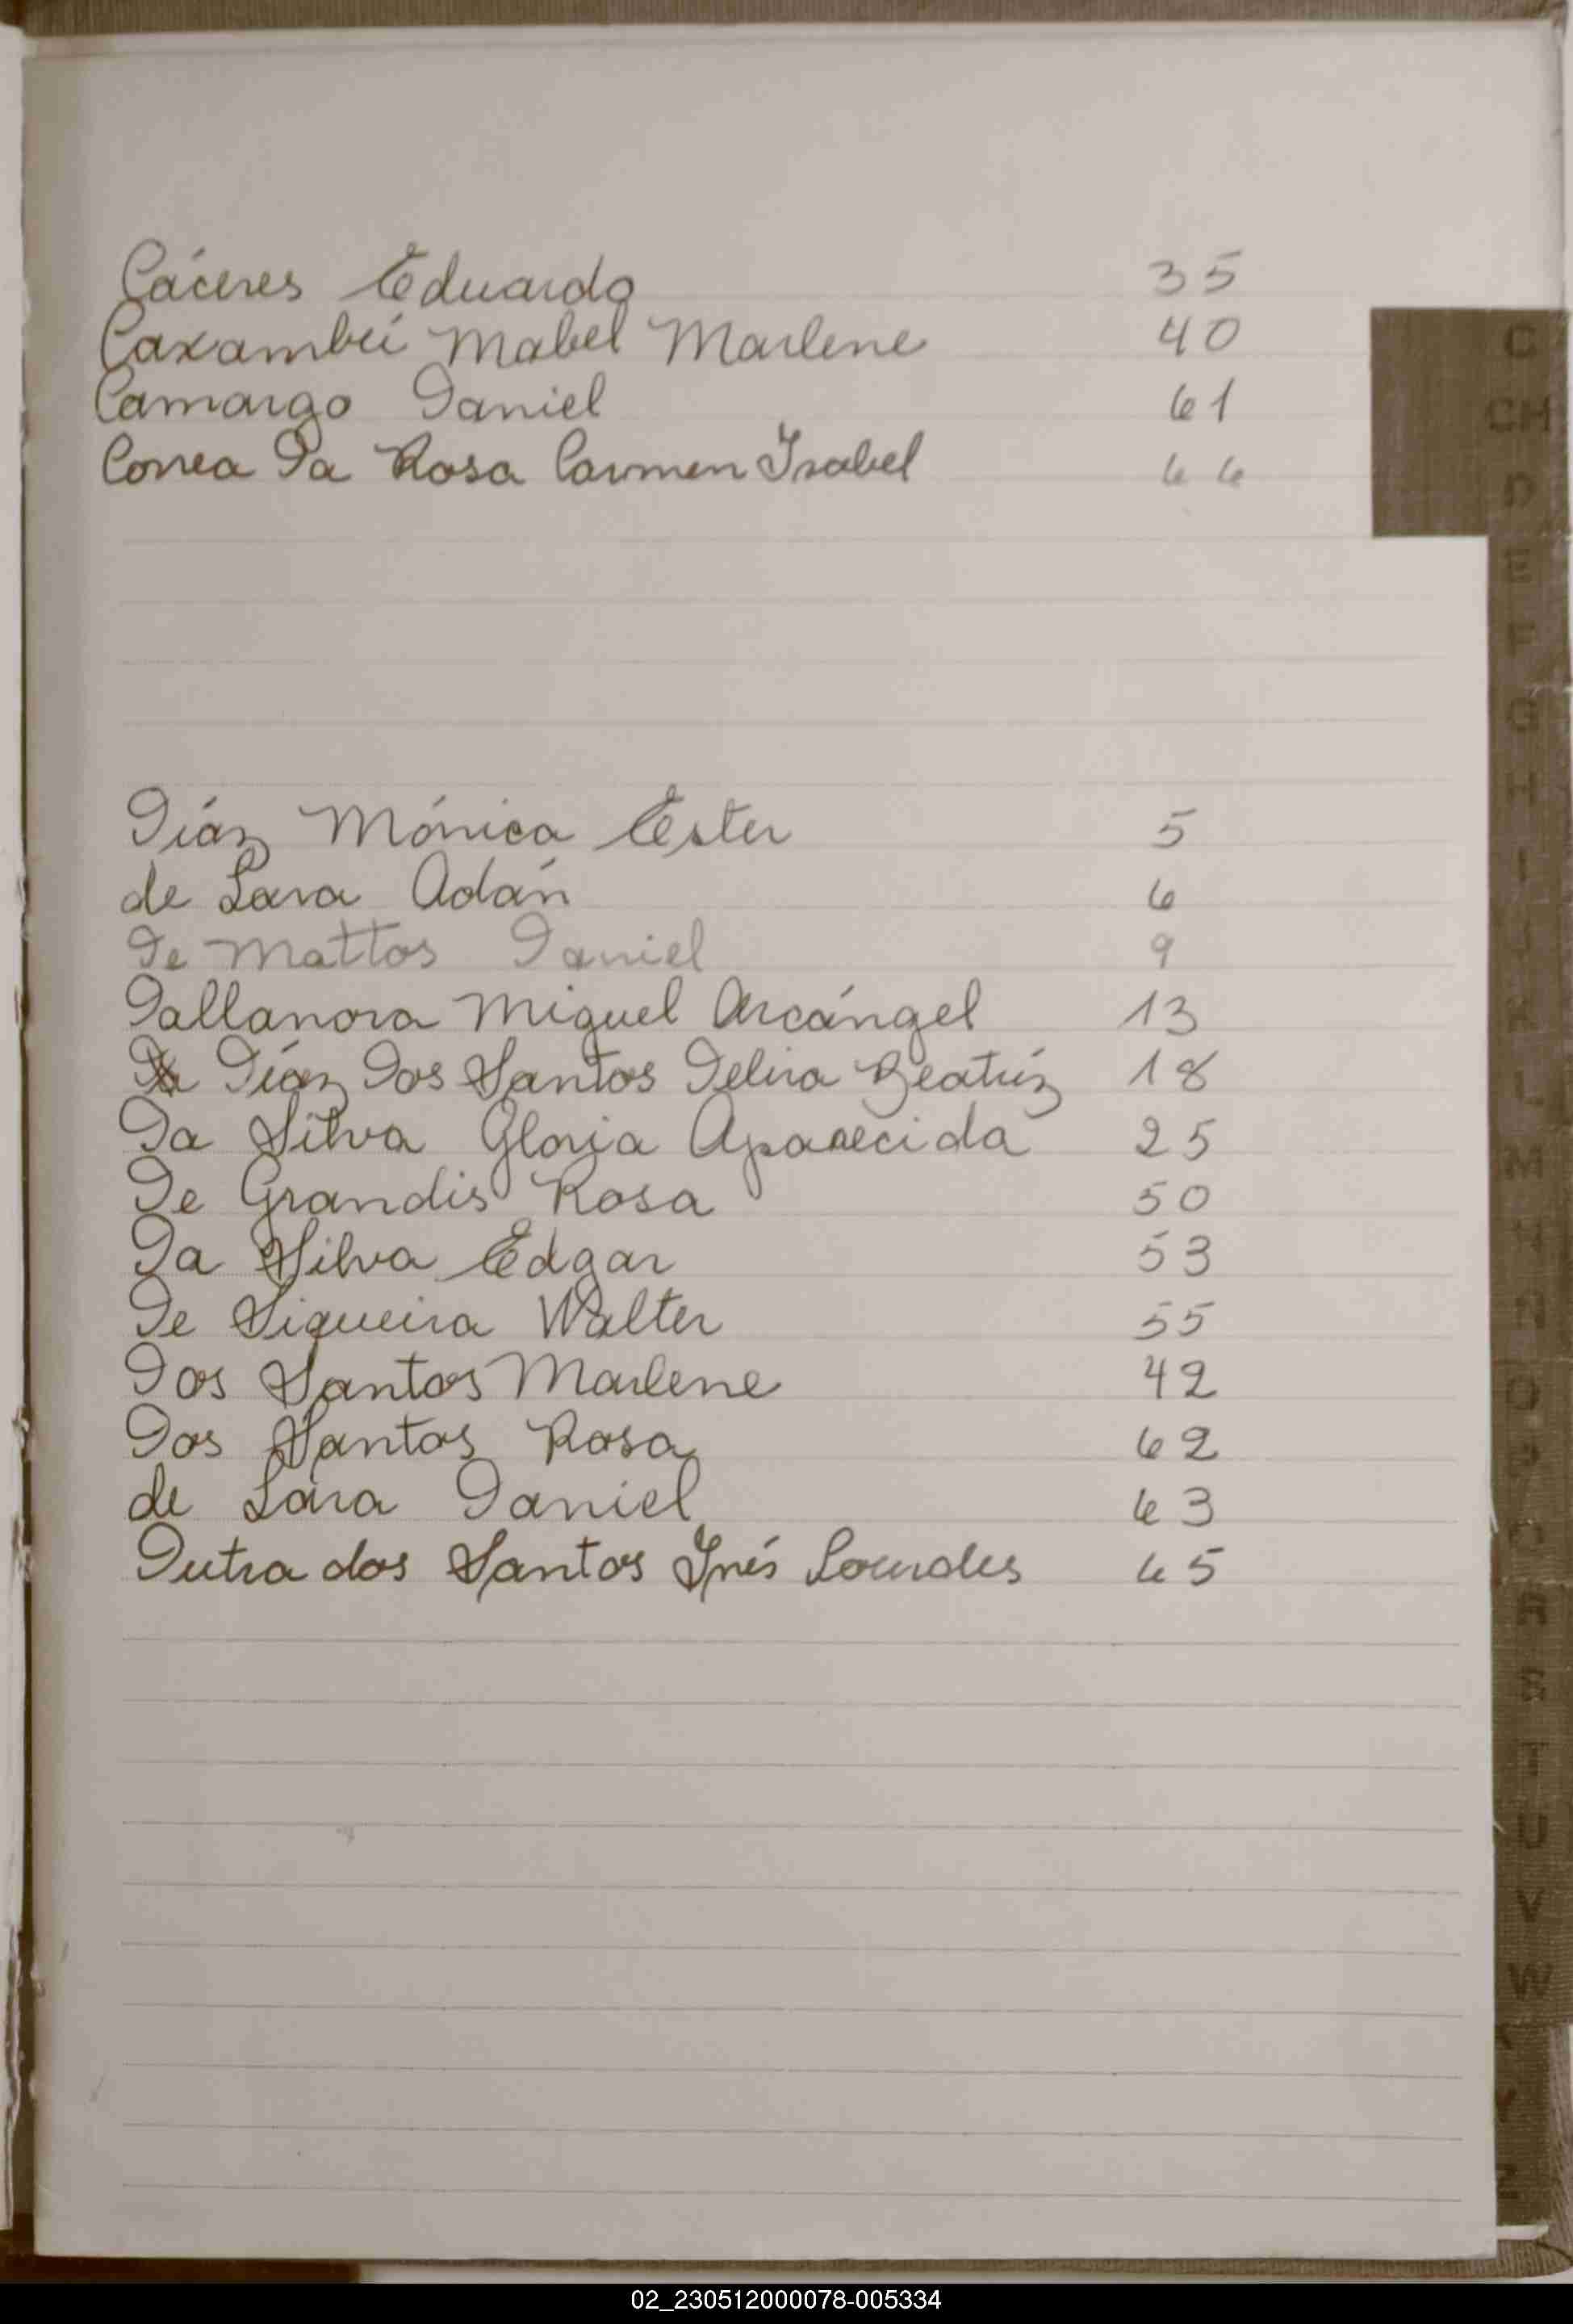 Cáceres Eduardo 35
Caxambú Mabel Marlene 40
Camargo Daniel 61
Correa Da Rosa Carmen Isabel 66
Díaz Mónica Ester 5
de Lara Adán 6
De Mattos Daniel 9
Dallanora Miguel Arcángel 13
Díaz Dos Santos Delira Beatríz 18
Da Silva Gloria Aparecida 25
De Grandis Rosa 50
Da Silva Edgar 53
De Siqueira Walter 55
Dos Santos Marlene 42
Dos Santos Rosa 62
de Lara Daniel 63
Dutra dos Santos Inés Lourdes 65
C
CH
D
E
F
G
H
I
J
K
L
M
N
Ñ
O
P
Q
R
S
T
U
V
W
Y
Z
02_230512000078-005334